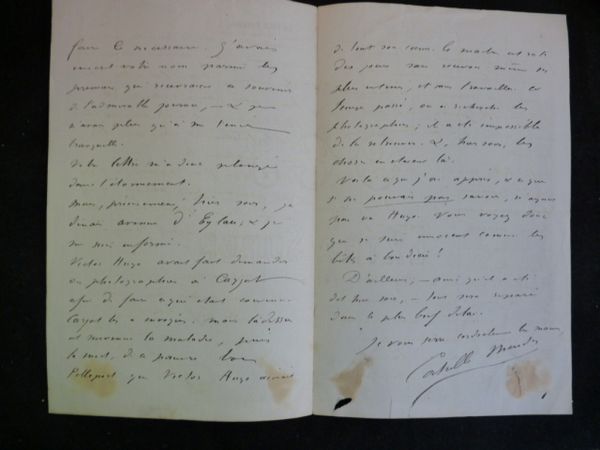 faire le nécessaire. J'avais
inscrit votre nom parmi les
personnes qui recevraient ce souvenir
de l'admirable poème, — & je
n'avais plus qu'à me tenir
tranquille.
Votre lettre m'a donc plongé
dans l'étonnement.
Mais, précisément, hier soir, je
dînais avenue d'Eylau, & je
me suis informé.
Victor Hugo avait fait demander
des photographies à Carjat
afin de faire ce qui était convenu
Carjat les a envoyées. Mais là-dessus
est survenue la maladie, puis
la mort, de ce pauvre bon
Pelleport que Victor Hugo aimait
de tout son cœur. Le maître est resté
des jours sans recevoir même ses
plus intimes, et sans travailler. Ce
temps passé, on a recherché les
photographies; il a été impossible
de les retrouver. &, hier soir, les
choses en étaient là.
Voilà ce que j'ai appris, & ce que
je ne pouvais pas savoir, n'ayant
pas vu Hugo. Vous voyez donc
que je suis innocent comme les
bêtes à bon Dieu!
D'ailleurs, — ainsi qu'il a été
dit hier soir, — tout sera réparé
dans le plus bref délai.
Je vous serre cordialement la main,
Catulle Mendès